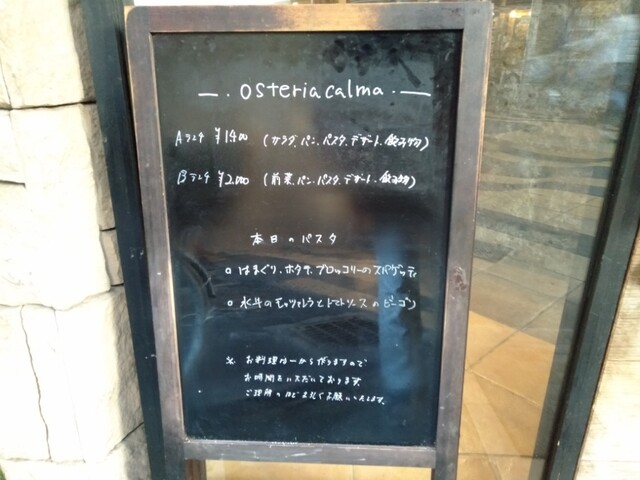 osteria calma
Aランチ ¥1400 (サラダ、パン、パスタ、デザート、飲み物)
Bランチ ¥2,000 (前菜、パン、パスタ、デザート、飲み物)
本日のパスタ
はまぐり、ホタテ、ブロッコリーのスパゲッティ
水牛のモッツァレラとトマトソースのピーゴリ
※ お料理は一から作りますので
お時間をいただいております。
ご理解のほどよろしくお願いいたします。